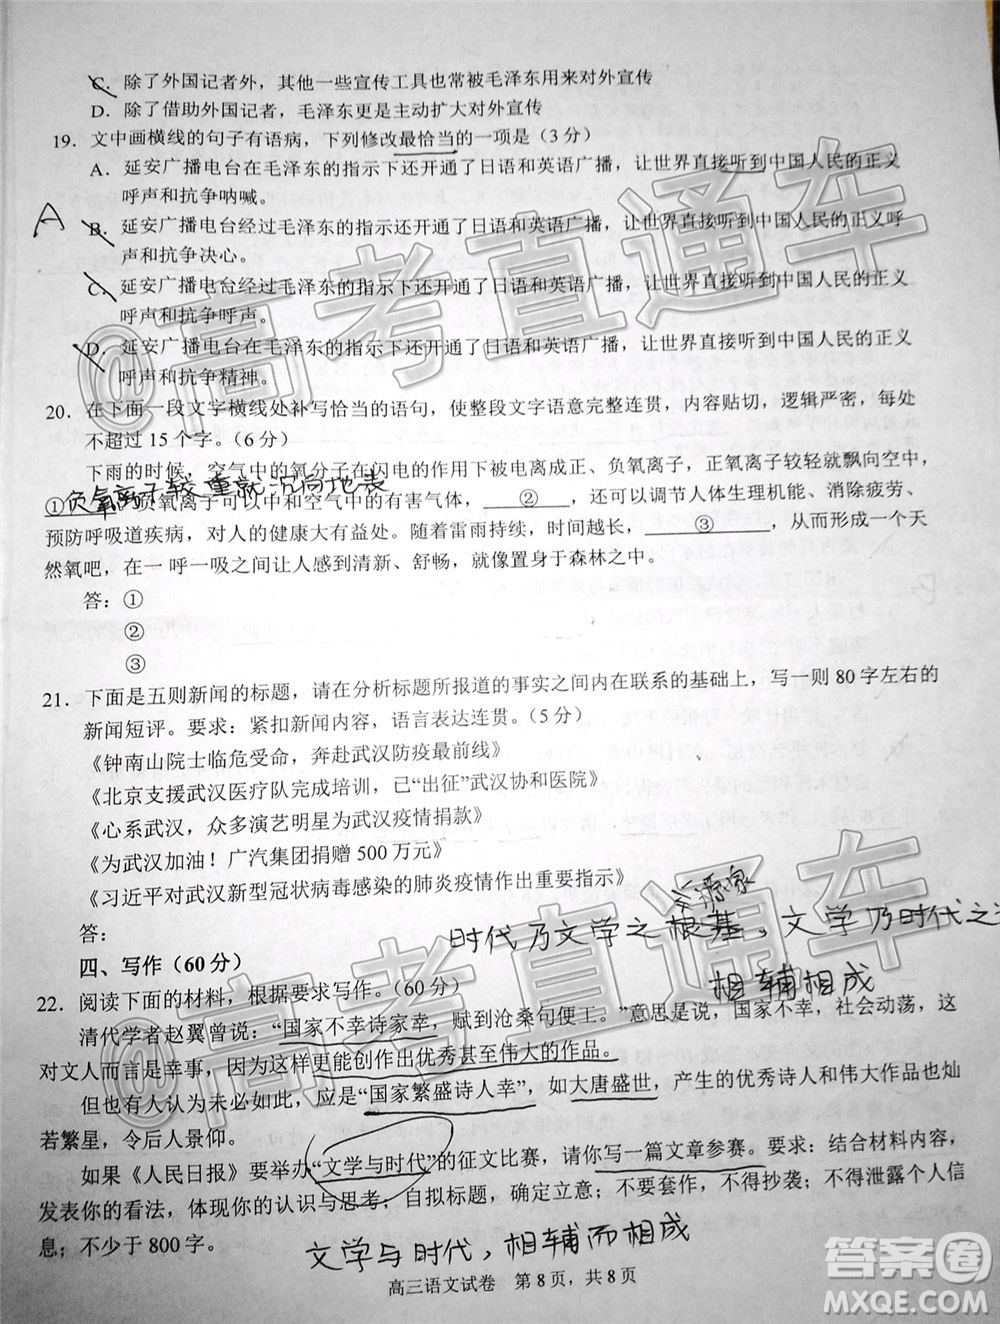 C．除了外国记者外，其他一些宣传工具也常被毛泽东用来对外宣传
D．除了借助外国记者，毛泽东更是主动扩大对外宣传
19．文中画横线的句子有语病，下列修改最恰当的一项是（3分）
A．延安广播电台在毛泽东的指示下还开通了日语和英语广播，让世界直接听到中国人民的正义
呼声和抗争呐喊。
A
B．延安广播电台经过毛泽东的指示还开通了日语和英语广播，让世界直接听到中国人民的正义呼
声和抗争决心。
C．延安广播电台经过毛泽东的指示下还开通了日语和英语广播，让世界直接听到中国人民的正义
呼声和抗争呼声。
D．延安广播电台在毛泽东的指示下还开通了日语和英语广播，让世界直接听到中国人民的正义
呼声和抗争精神。
20．在下面一段文字横线处补写恰当的语句，使整段文字语意完整连贯，内容贴切，逻辑严密，每处
不超过15个字。（6分）
下雨的时候，空气中的氧分子在闪电的作用下被电离成正、负氧离子，正氧离子较轻就飘向空中，
负氧离子较重就沉向地表
①　　　　。负氧离子可以中和空气中的有害气体，　②　，可以调节人体生理机能、消除疲劳、
预防呼吸道疾病，对人的健康大有好处。随着雷雨持续，时间越长，　③　，从而形成一个天
然氧吧，在一 呼一吸之间让人感到清新、舒畅，就像置身于森林之中。
答：①
②
③
21．下面是五则新闻的标题，请在分析标题所报道的事实之间内在联系的基础上，写一则80字左右的
新闻短评。要求：紧扣新闻内容，语言表达连贯。（5分）
《钟南山院士临危受命，奔赴武汉防疫最前线》
《北京支援武汉医疗队完成培训，已“出征”武汉协和医院》
《心系武汉，众多演艺明星为武汉疫情捐款》
《为武汉加油！广汽集团捐赠500万元》
《习近平对武汉新型冠状病毒感染的肺炎疫情作出重要指示》
答：
时代乃文学之根基，文学乃时代之
相辅相成
四、写作（60分）
22．阅读下面的材料，根据要求写作。（60分）
清代学者赵翼曾说：“国家不幸诗家幸，赋到沧桑句便工。”意思是说，国家不幸，社会动荡，这
对文人而言是幸事，因为这样更能创作出优秀甚至伟大的作品。
但也有人认为未必如此，应是“国家繁盛诗人幸”，如大唐盛世，产生的优秀诗人和伟大作品也灿
若繁星，令后人景仰。
如果《人民日报》要举办“文学与时代”的征文比赛，请你写一篇文章参赛。要求：结合材料内容，
发表你的看法，体现你的认识与思考；自拟标题，确定立意；不要套作，不得抄袭；不得泄露个人信
息；不少于800字。
文学与时代，相辅而相成
高三语文试卷　第8页，共8页
@高考直通车
@高考直通车
答案圈
MXQE.COM